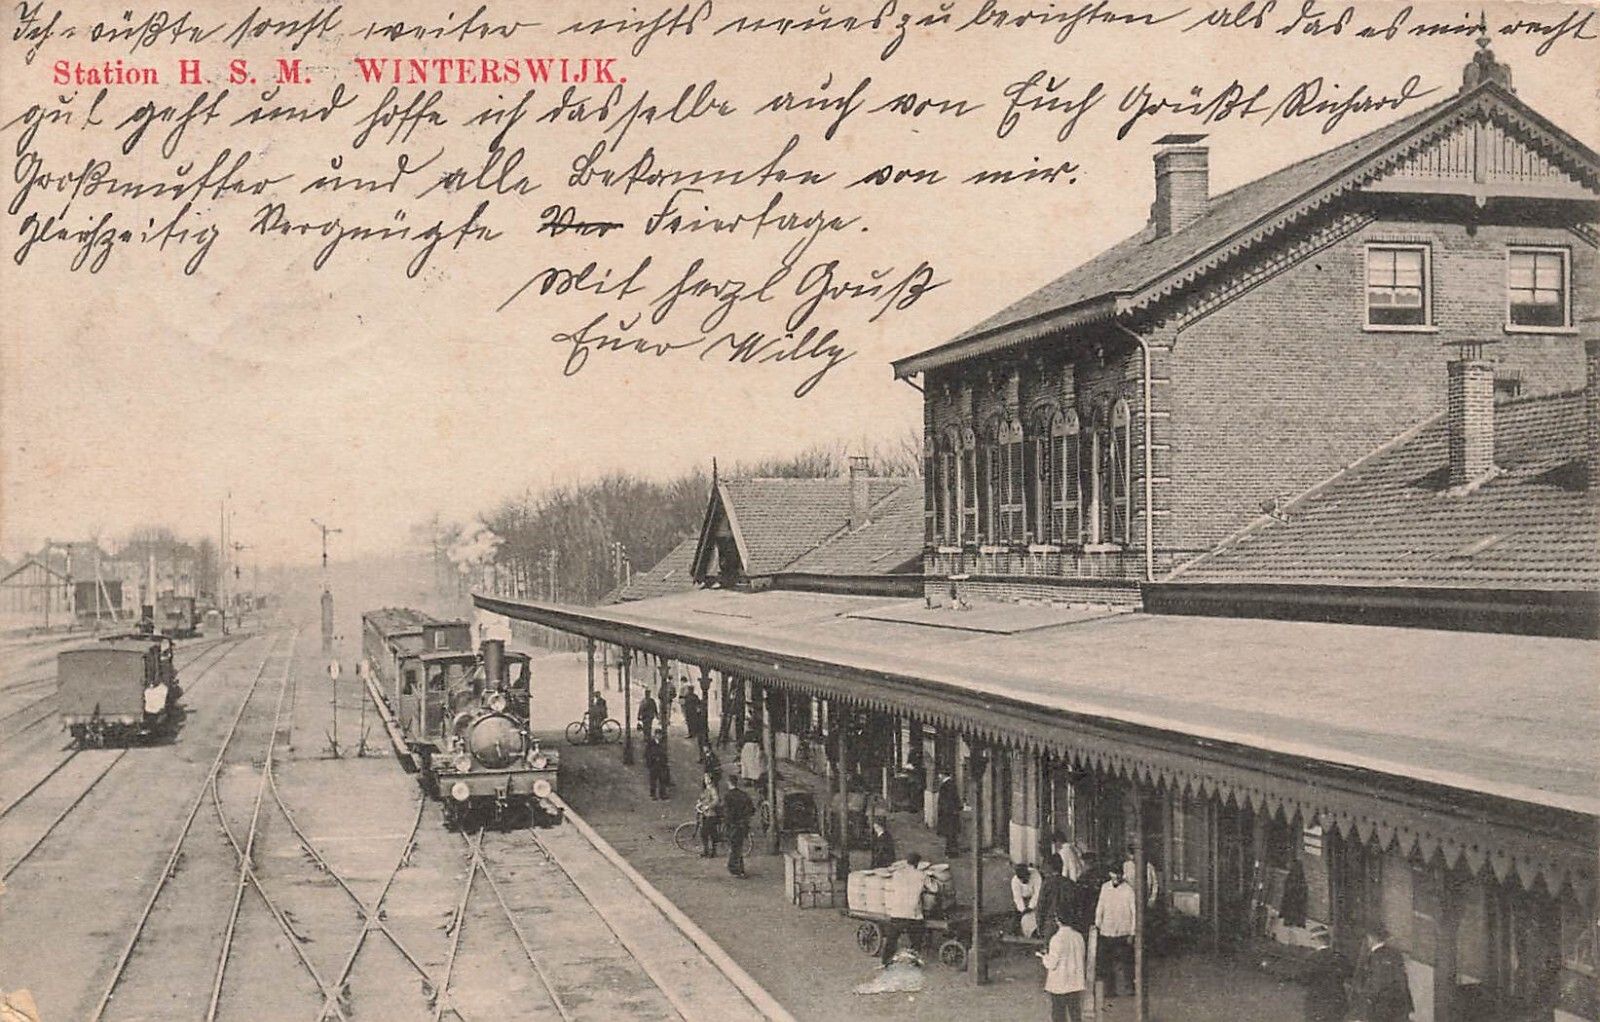 Ich wüßte sonst weiter nichts neues zu berichten als das es mir recht
Station H. S. M. WINTERSWIJK.
gut geht und hoffe ich dasselbe auch von Euch Grüßt Richard
Großmutter und alle Bekannten von mir.
Gleichzeitig Vergnügte Ver Feiertage.
Mit herzl Gruß
Euer Willy